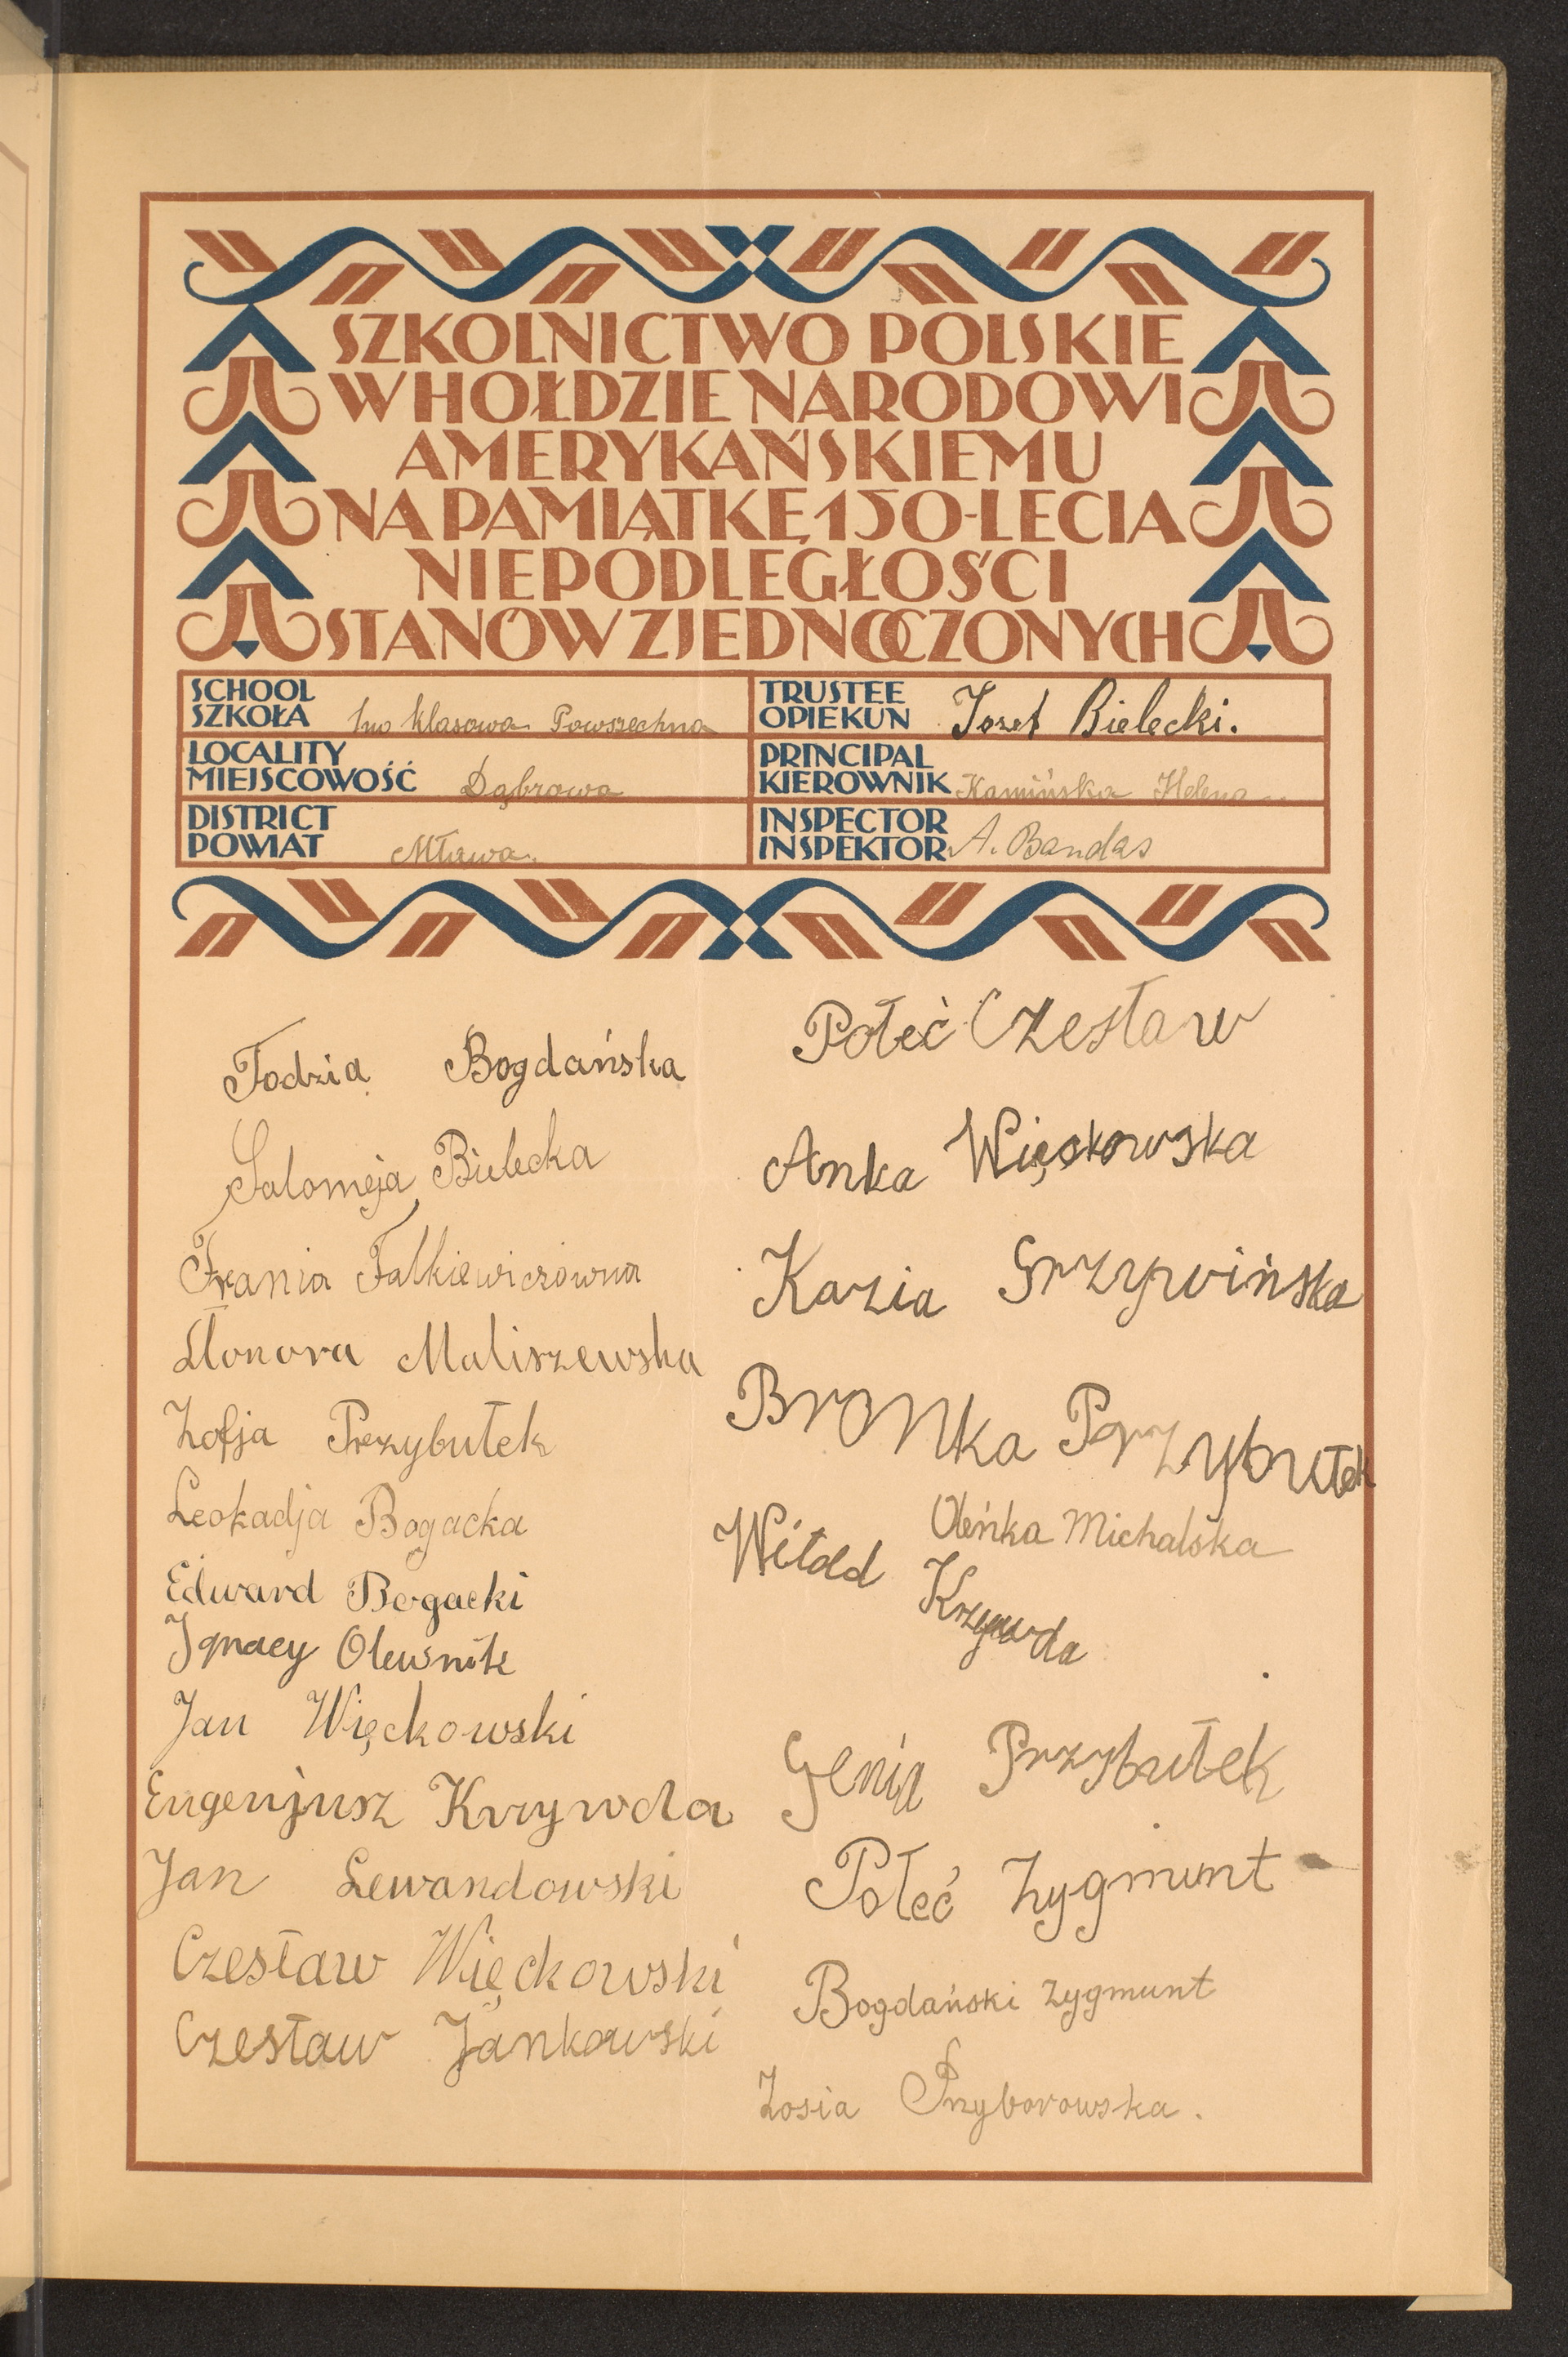 SZKOLNICTWO POLSKIE
W HOŁDZIE NARODOWI
AMERYKAŃSKIEMU
NA PAMIĄTKĘ 150-LECIA
NIEPODLEGŁOŚCI
STANÓW ZJEDNOCZONYCH
SCHOOL
SZKOŁA klasowa Powszechna
LOCALITY
MIEJSCOWOŚĆ Dąbrowa
DISTRICT
POWIAT Mława.
TRUSTEE
OPIEKUN Józef Bielecki.
PRINCIPAL
KIEROWNIK Kamińska Helena
INSPECTOR
INSPEKTOR A. Bandas
Fodzia Bogdańska
Salomeja Bielecka
Frania Falkiewiczówna
Elonora Maliszewska
Zofja Przybułek
Leokadja Bogacka
Edward Bogacki
Ignacy Olewnik
Jan Więckowski
Eugenjusz Krzywda
Jan Lewandowski
Czesław Więckowski
Czesław Jankowski
Połeć Czesław
Anka Więckowska
Kazia Grzywińska
Bronka Przybułek
Oleńka Michalska
Witold Krzywda
Genia Przybułek
Połeć Zygmunt
Bogdański Zygmunt
Zosia Przyborowska.